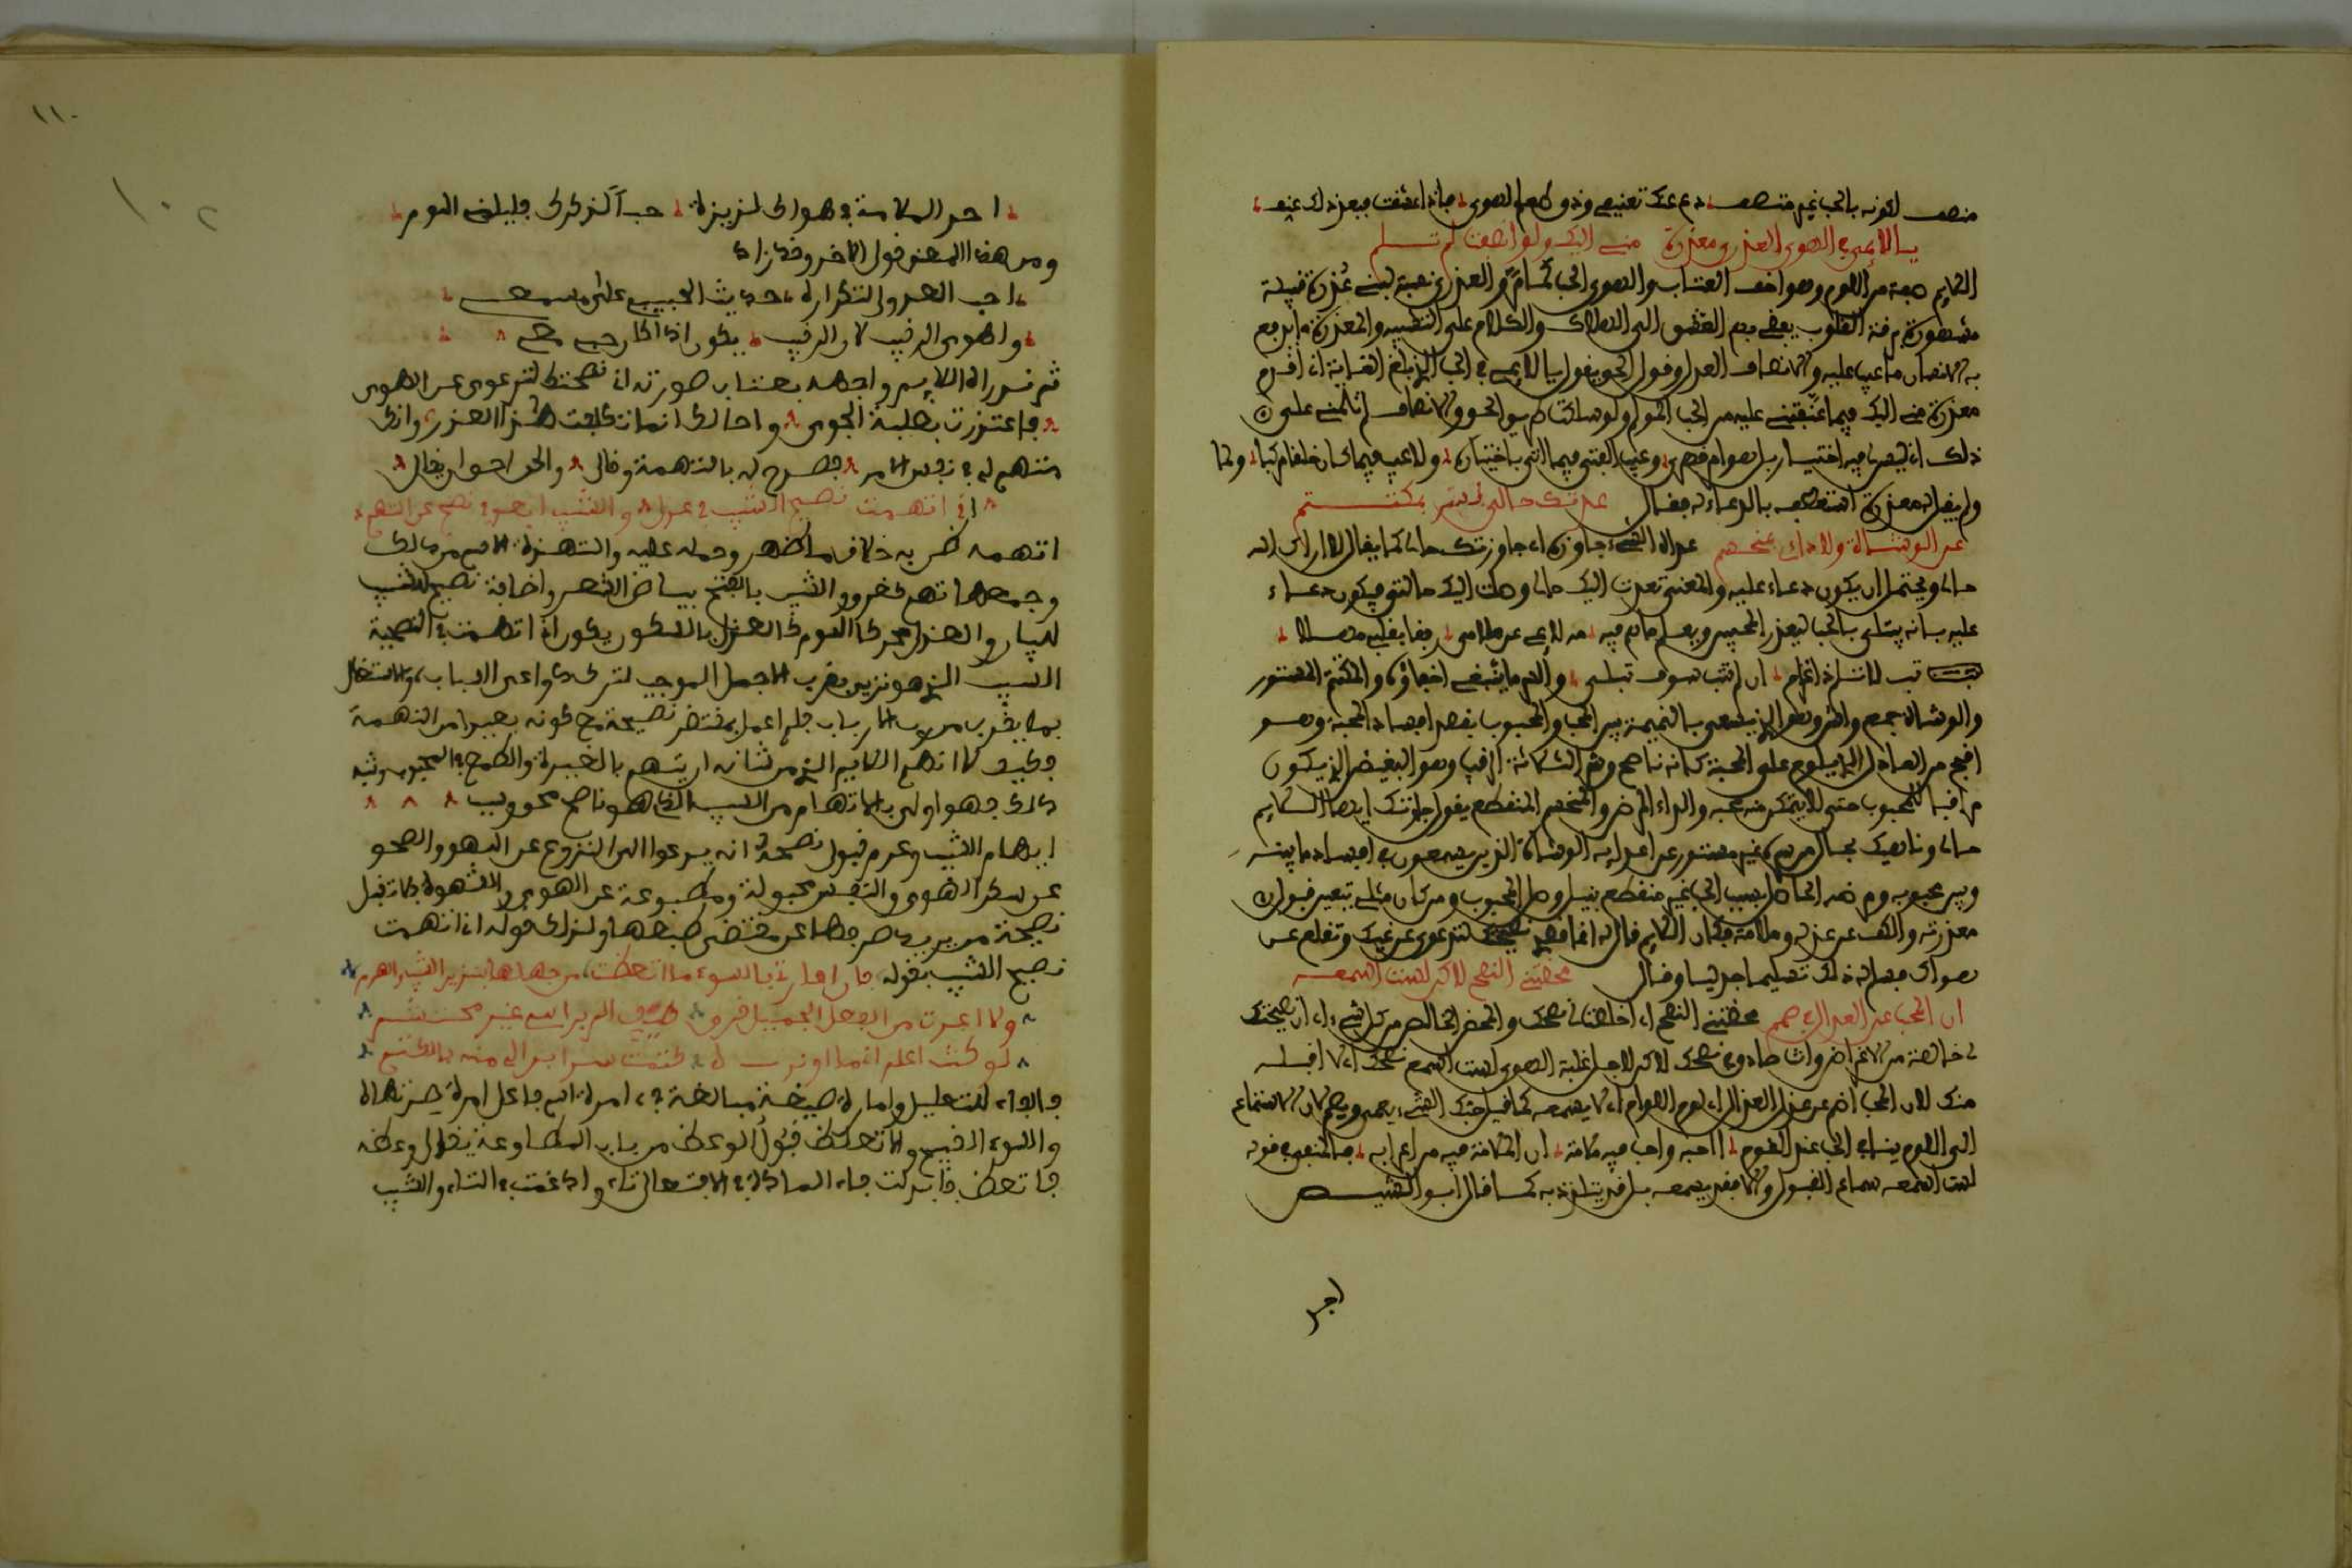 منصف لكونه بالحب غير متصف دع عنك تعنيفي وذق طعم الهوى فاذا عشقت فبعد ذلك عنف
يا لائمي في الهوى العذري معذرة مني اليك ولو انصفت لم تلم
اللايم صفة من اللوم وهو اخف العتاب والهوى الحب كما مر والعذري نسبة لبني عذرة قبيلة
مشهورة برقة القلوب يفضي بهم العشق الى الهلاك والكلام على التشبيه والمعذرة ما يرفع
به الانسان ما عيب عليه والانصاف العدل وقول الحق يقول يا لايمي في الحب الذي بلغ الغاية اني اقدم
معذرة مني اليك فيما عنفتني عليه من الحب ولو سلكت طريق الحق والانصاف لم تلمني على
ذلك اذ ليس لي فيه اختيار بل هو امر قهري وعيب الفتى فيما اتى باختياره ولا عيب فيما كان خلقا مركبا ولما
لم يقبل معذرته استعطفه بالدعاء له فقال عدتك حالي لا سري بمستتر
عن الوشاة ولا دائي بمنحسم عداه الشيء جاوزه اي جاوزتك حالي كما يقال لا اراك الله
حالي ويحتمل ان يكون دعاء عليه والمعنى تعدت اليك حالي وصلت اليك حالتي فيكون دعاء
عليه بانه يبتلى بالحب ليعذر المحبين ويعلم ما هم فيه
والوشاة جمع واش وهو الذي يسعى بالنميمة بين المحب والمحبوب بقصد افساد المحبة وهو
اقبح من العاذل الذي يلوم على المحبة كانه ناصح وشر الثلاثة الرقيب وهو البغيض الذي يكون
مراقبا للمحبوب حتى لا يتمكن منه محبه والداء المرض والمنحسم المنقطع يقول جاوزتك ايها اللايم
حالي وناهيك بحال من سره غير مستتر عن اعدايه الوشاة الذين يسعون في افساد ما بينه
وبين محبوبه ومرضه الحاصل بسبب الحب غير منقطع بنيل وصل المحبوب ومن كان مثلي تعين قبول
معذرته والكف عن عذله وملامه فكان اللايم قال له انما نصحتك لترعوي عن غيك وتقلع عن
هواك فسلم له ذلك تسليما جدليا وقال محضتني النصح لاكن لست اسمعه
ان المحب عن العذال في صمم محضتني النصح اي اخلصت لي نصحك والمحض الخالص من كل شيء اي ان نصيحتك
لي خالصة من الاغراض وانت صادق في نصحك لاكن لاجل غلبة الهوى لست اسمع نصحك اي لا اقبله
منك لان المحب اصم عن عذل العذال اي لوم اللوام اي لا يسمعه كما قيل حبك الشيء يعمي ويصم لان الاستماع
الى اللوم ينافي الحب عند القوم أاحبه واحب فيه ملامة ان الملامة فيه من اعدايه فالمنفي في قوله
لست اسمعه سماع القبول والا فقد يسمعه بل قد يتلذذ به كما قال ابو الشيص
اجد
١١٠
١٠٢
اجد الملامة في هواك لذيذة حبا لذكرك فليلمني اللوم
ومن هذا المعنى قول الاخر وقد زاد
احب العذول لتكراره حديث الحبيب على مسمعي
واهوى الرقيب لان الرقيب يكون اذا كان حبي معي
ثم نزل اللايم واجهه بعتاب صورته اني نصحتك لترعوي عن الهوى
فاعتذرت بغلبة الجوى واحالك انما تكلفت هذا العذر وانك
متهم لي في نفس الامر فصرح له بالتهمة وقال والحق احق ان يقال
اني اتهمت نصيح الشيب في عذلي والشيب ابعد في نصح عن التهم
اتهمه ظن به خلاف ما اظهر وحمله عليه والتهمة الاسم من ذلك
وجمعها تهم والشيب بالفتح بياض الشعر واضافة نصيح للشيب
للبيان والعذل محركا اللوم كالعذل بالسكون يقول اني اتهمت في النصيحة
الشيب الذي هو نذير بقرب الاجل الموجب لترك دواعي الشباب والاشتغال
بما يقرب من رب الارباب فلم اعمل بمقتضى نصيحته مع كونه بعيدا من التهمة
فكيف لا اتهم اللايم الذي من شانه ان يتهم بالغيرة والطمع في المحبوب وشبه
ذلك فهو اولى بالاتهام من الشيب الذي هو ناصح محق
ايهام الشيب وعدم قبول نصحه انه يدعوا الى النزوع عن اللهو والصحو
عن سكر الهوى والنفس مجبولة ومطبوعة على الهوى والشهوة فلا تقبل
نصيحة من يريد صرفها عن مقتضى طبعها ولذلك قوله اني اتهمت
نصيح الشيب بقوله فان امارتي بالسوء ما اتعظت من جهلها بنذير الشيب والهرم
ولا اعدت من الفعل الجميل قرى ضيف الم براسي غير محتشم
لو كنت اعلم اني ما اوقره كتمت سرا بدا لي منه بالكتم
فالفاء للتعليل وامارة صيغة مبالغة في امرة اسم فاعل امرة
والسوء القبيح والاتعاظ قبول الوعظ من باب المطاوعة يقال وعظه
فاتعظ فابدلت فاء المادة في الافتعال تاء وادغمت في التاء والشيب